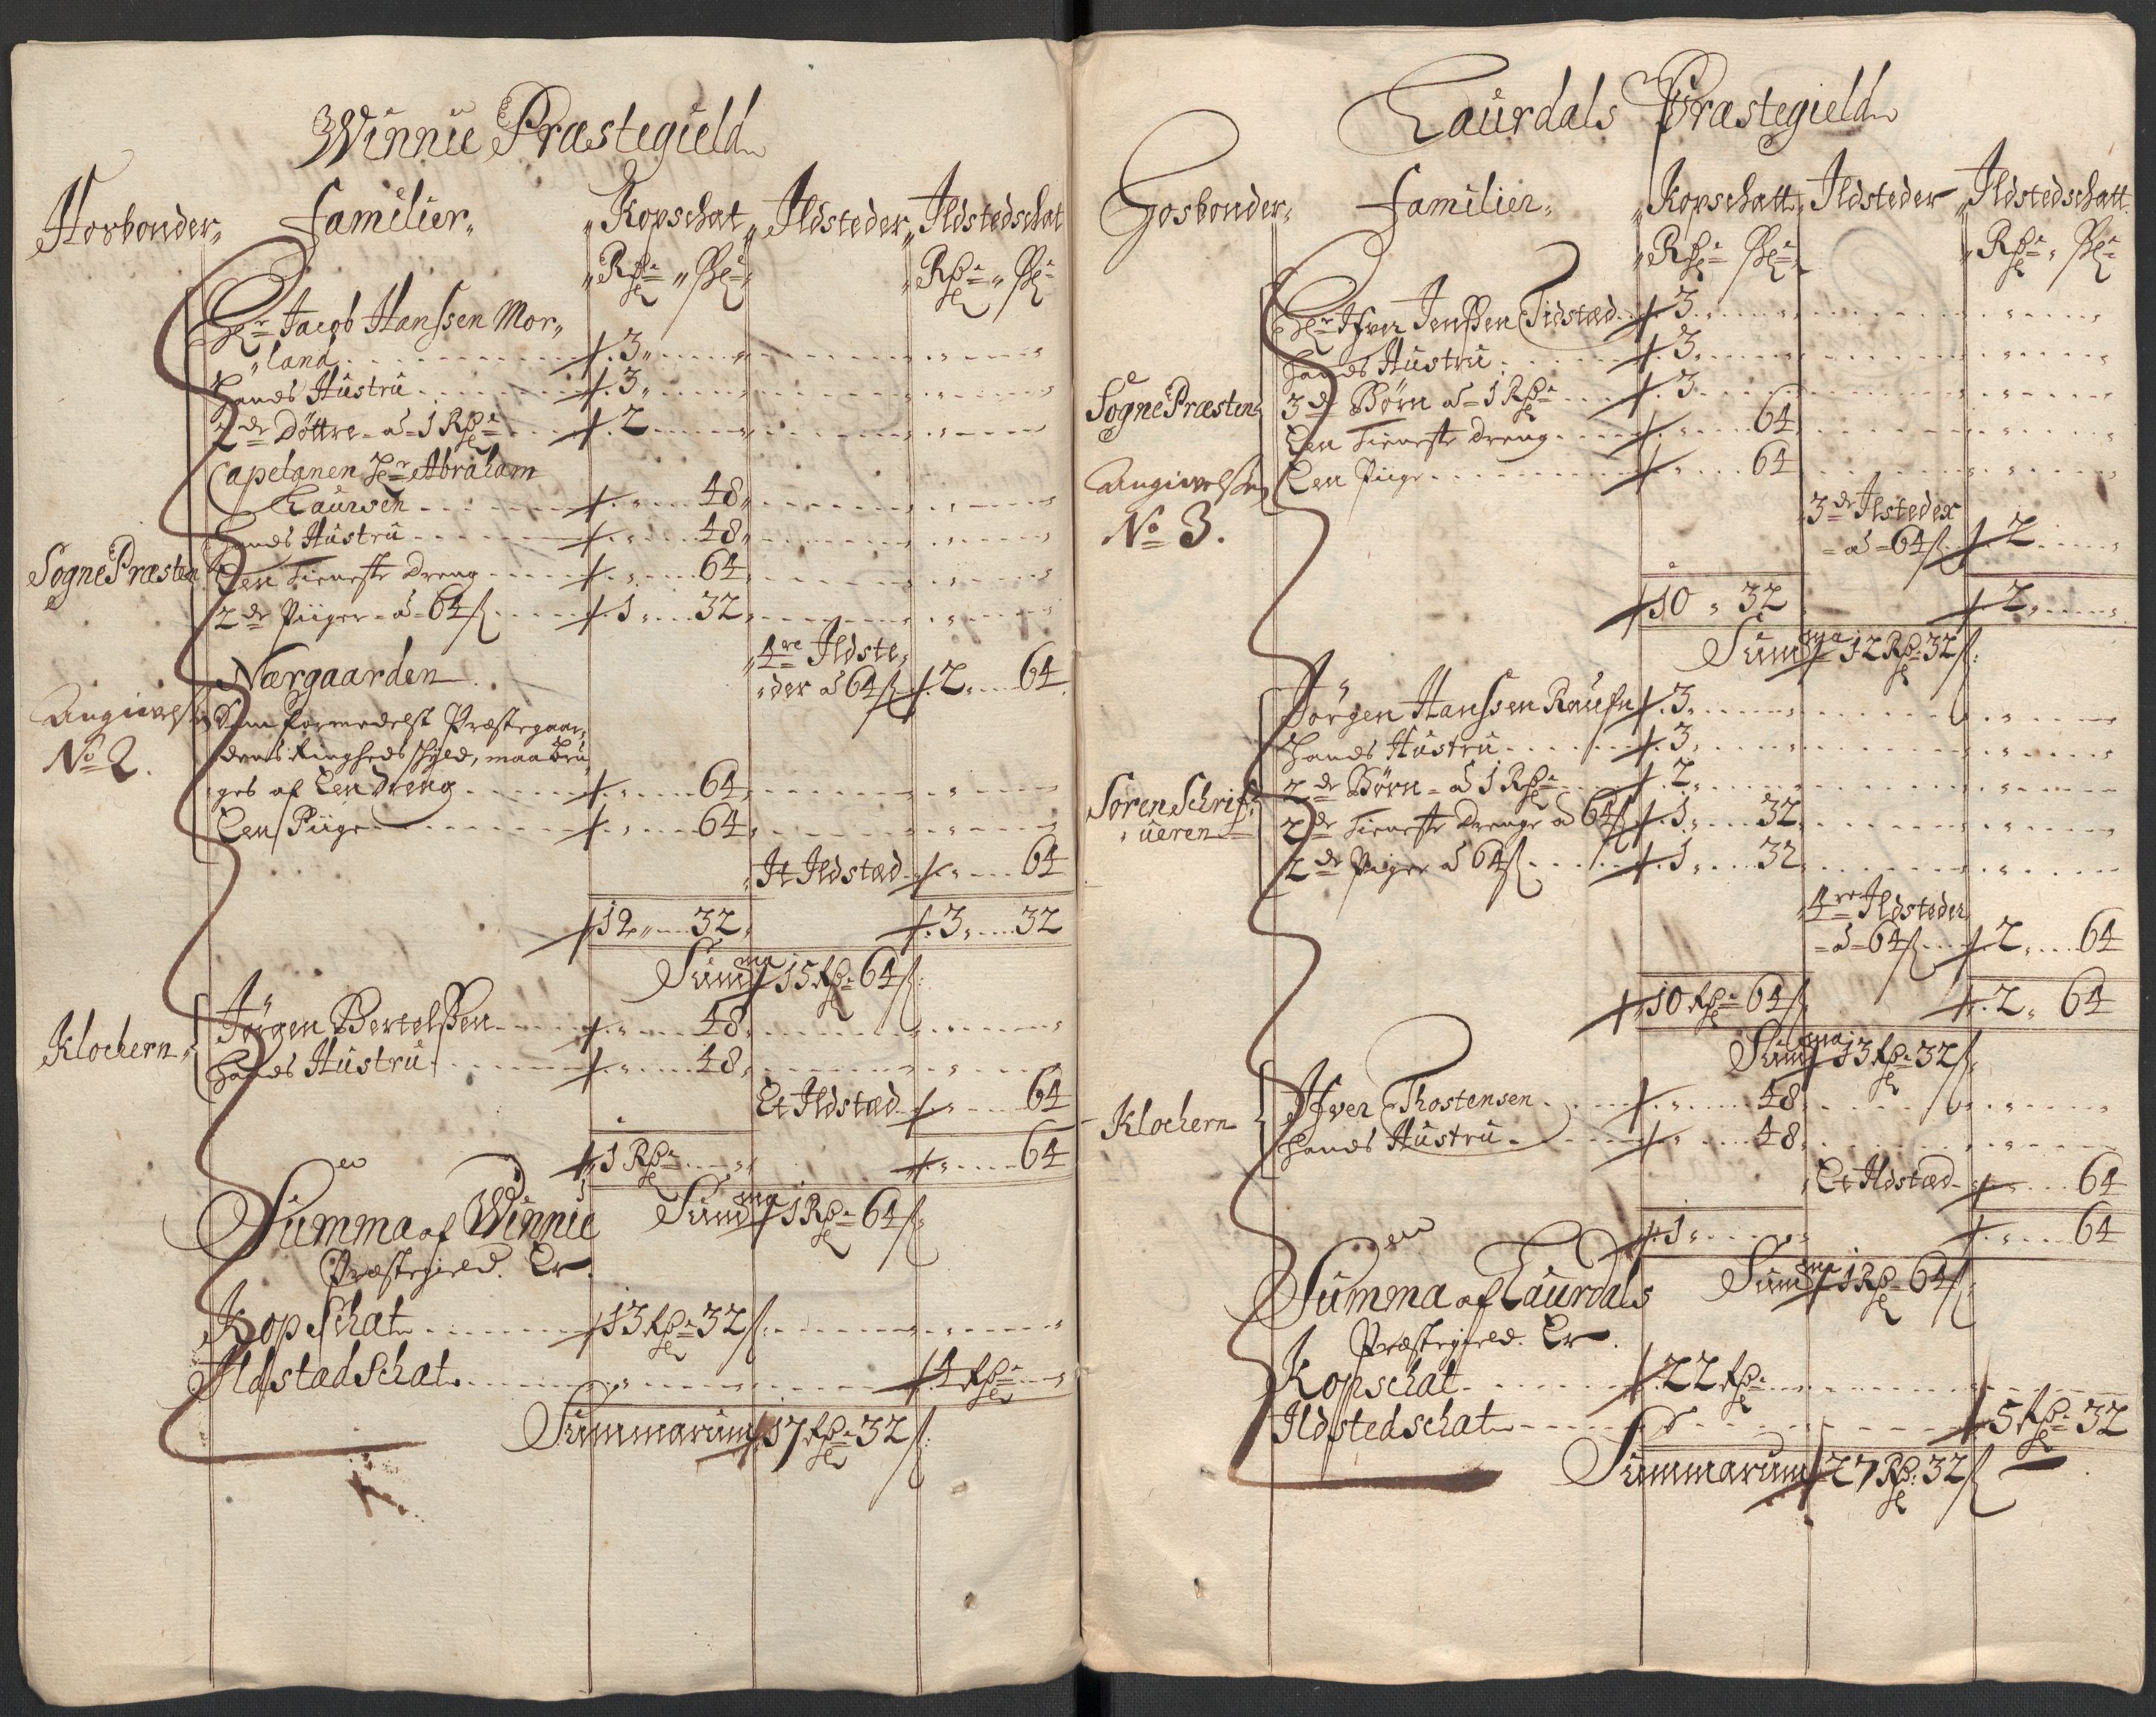 Winnie Præstegield
Hosbonder, Familier, Kopschat, Ildsteder, Ildstedschat
Rdr ß Rdr ß
Hr Jacob Hanssen Mor„
„land 3
Hands Hustru 3
2de Döttre â 1 Rdr 2
Capelanen Hr Abraham
Laursen 48
Hands Hustru 48
Sogne Præsten Een Tieneste Dreng 64
2de Piiger â 64 ß 1 32
Nærgaarden
4re Ildste„
„der â 64 ß 2 64
Angivelsen
No 2.
Som formedelst Præstegaar„
dens Ringheds skyld, maa bru„
ges af Een Dreng 64
Een Piige 64
It Ildstæd 64
12 32 3 32
Summa 15 Rdr 64 ß
Klockern Jörgen Bertelssen 48
Hands Hustru 48
Et Ildstæd 64
1 Rdr 64
Summa 1 Rdr 64 ß
Summa af Winnie
Præstegield. Er
Kopschat 13 Rdr 32 ß
Ildstædschat 4 Rdr
Summarum 17 Rdr 32 ß
Laurdals Præstegield
Hosbonder, Familier, Kopschatt, Ildsteder Ildstedschatt
Rdr ß Rdr ß
Hr Ifver Jenssen Tidstæd 3
Hands Hustru 3
Sogne Præsten 3de Börn â 1 Rdr 3
Een Tieneste Dreng 64
Angivelsen Een Piige 64
No 3.
3de Ilsteder
â 64 ß 2
10 32 2
Summa 12 Rdr 32 ß
Jörgen Hanssen 3
Hands Hustru 3
Soren Schrif„ 2de Börn â 1 Rdr 2
„ueren 2de Tieneste Drenge â 64 ß 1 32
2de Piiger â 64 ß 1 32
4re Ildsteder
â 64 ß 2 64
10 Rdr 64 ß 2 64
Summa 13 Rdr 32 ß
Klockern Ifver Thostensen 48
Hands Hustru 48
Et Ildstæd 64
1 64
Summa 1 Rdr 64 ß
Summa af Laurdals
Præstegield. Er
Kopschat 22 Rdr
Ildstedschat 5 Rdr 32
Summarum 27 Rdr 32 ß